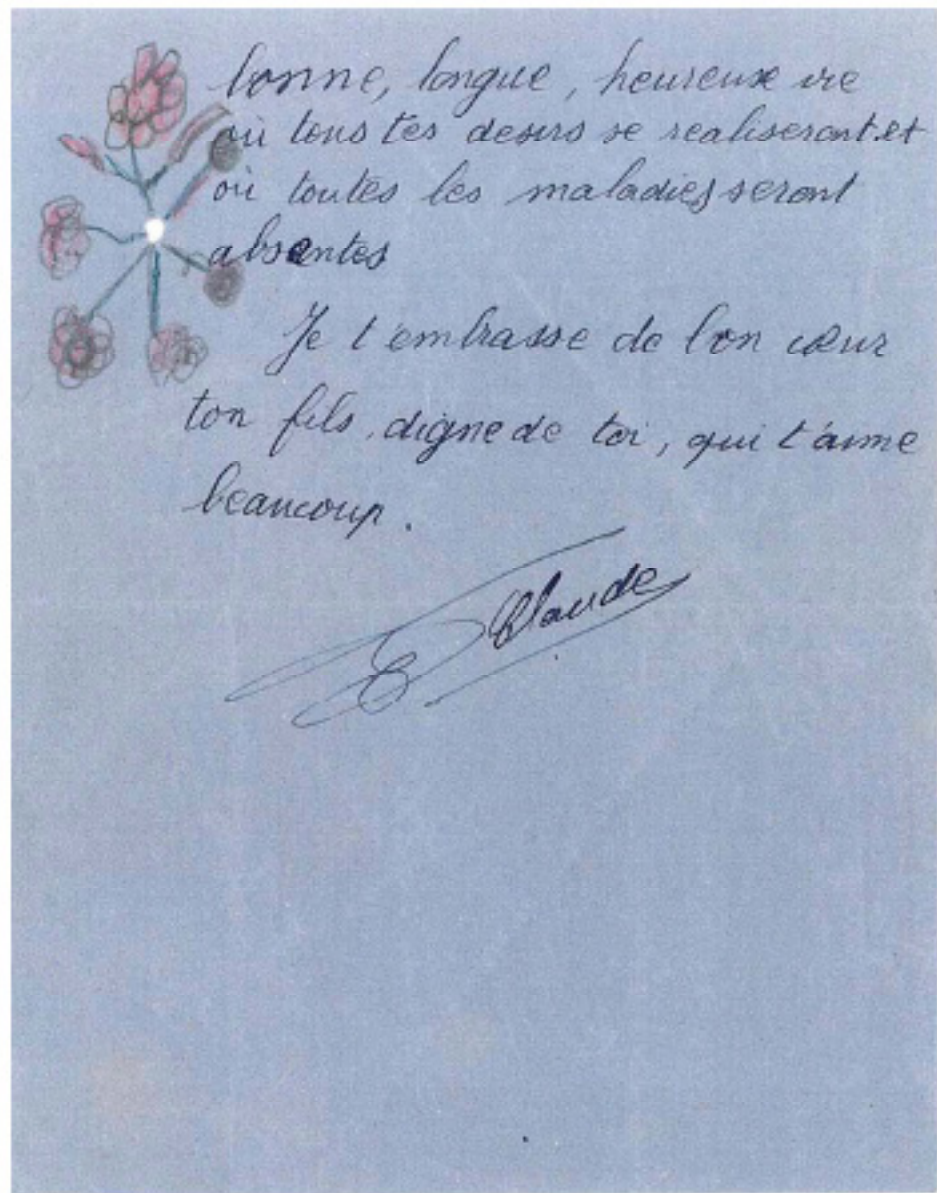 bonne, longue, heureuse vie
où tous tes desirs se realiseront et
où toutes les maladies seront
absentes
Je t'embrasse de bon cœur
ton fils, digne de toi, qui t'aime
beaucoup.
Claude